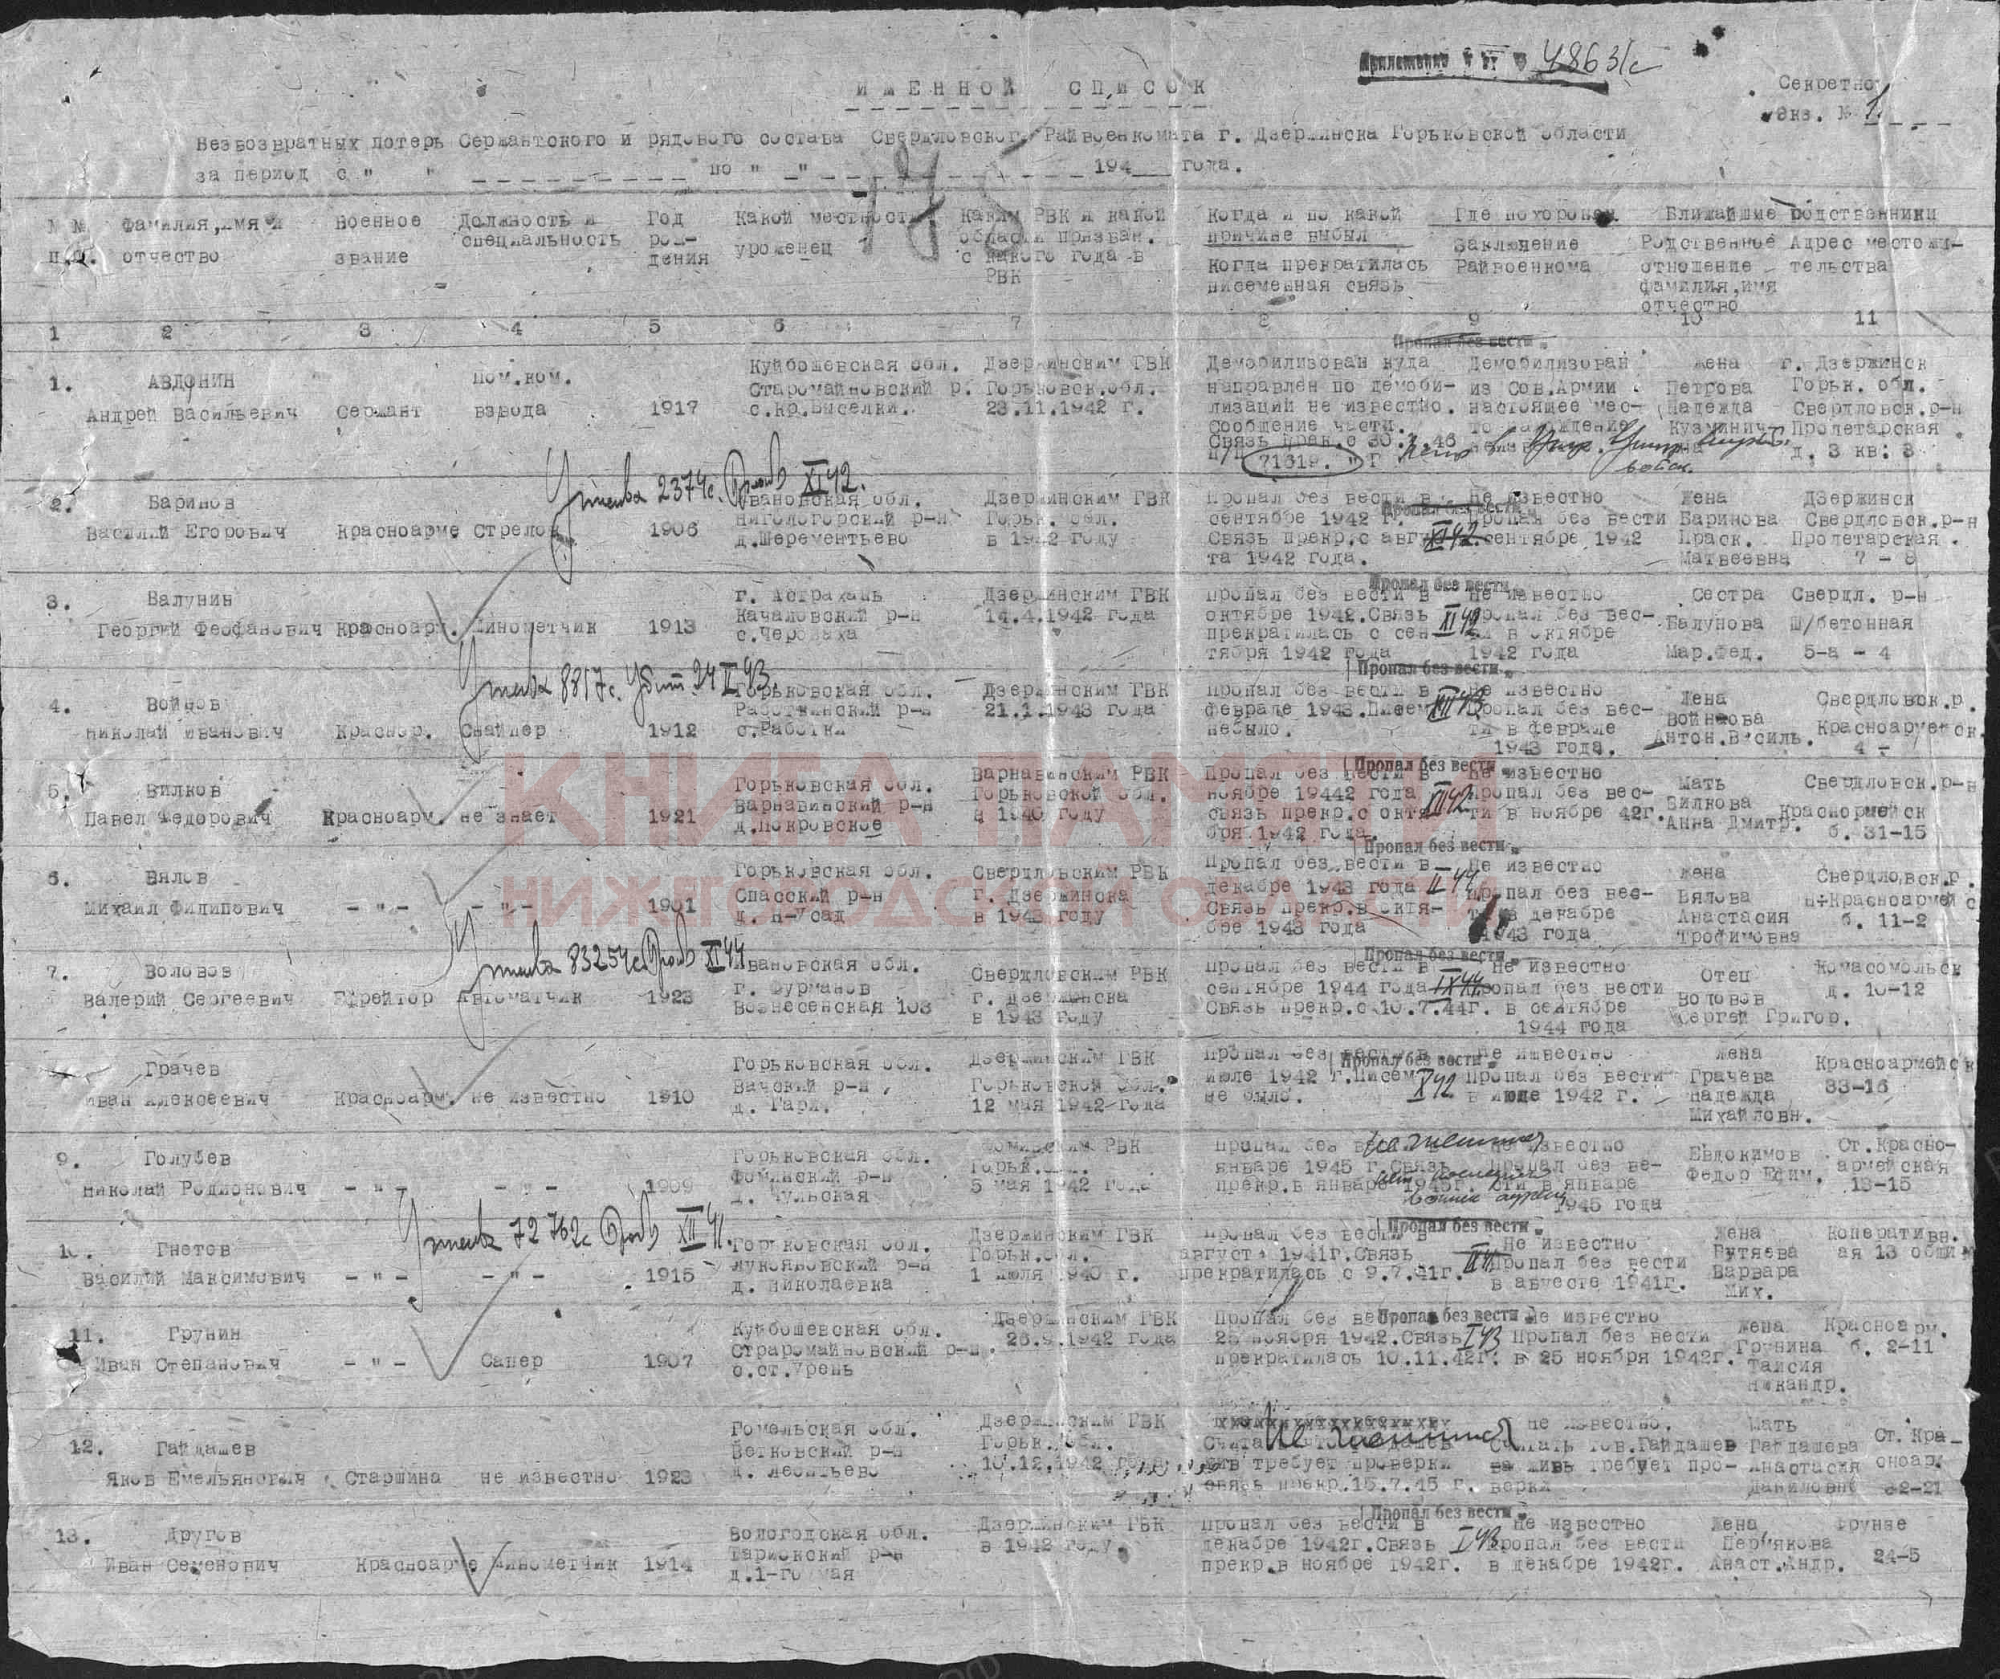 48631с
Секретно
ИМЕННОЙ СПИСОК
Экз. № 1
Безвозвратных потерь Сержантского и рядового состава Свердловского Райвоенкомата г. Дзержинска Горьковской области
за период с " " по " " 194 года.
№ № п.п. Фамилия,имя и отчество Военное звание Должность и специальность Год рож-дения Какой местности уроженец Каким РВК и какой области призван. с какого года в РВК Когда и по какой причине выбыл Когда прекратилась письменная связь Где похоронен Заключение Райвоенкома Ближайшие родственники Родственное отношение фамилия,имя отчество Адрес местожи-тельства
1 2 3 4 5 6 7 8 9 10 11
Пропал без вести
1. АВДОНИН Пом.ком. Куйбошевская обл. Дзержинским ГВК Демобилизован куда Демобилизован жена г. Дзержинск
Старомайновский р. Горьковск.обл. направлен по демоби- из Сов.Армии Петрова Горьк. обл.
Андрей Васильевич Сержант взвода 1917 с.Кр.Выселки. 23.11.1942 г. лизаций не известно. настоящее мес- Надежда Свердловск.р-н
Сообщение части. Кузминич Пролетарская
71619. д. 3 кв: 3
2374с. XI 42.
2. Баринов Ивановская обл. Дзержинским ГВК Пропал без вести в Не известно Жена Дзержинск
Василий Егорович Красноарме Стрелок 1906 Нигологорский р-н Горьк. обл. сентябре 1942 г. Пропал без вести Баринова Свердловск.р-н
д.Шерементьево в 1942 году Связь прекр.с авгус XI 42. сентябре 1942 Праск. Пролетарская
та 1942 года. Матвеевна 7 - 8
Пропал без вести
3. Валунин г. Астрахань Дзержинским ГВК Пропал без вести в Не известно Сестра Свердл. р-н
Георгий Феофанович Красноарм. Минометчик 1913 Качаловский р-н 14.4.1942 года октябре 1942.Связь XI 42 Пропал без вес- Балунова Ш/бетонная
прекратилась с сен ти в октябре
тября 1942 года 1942 года Мар.Фед. 5-а - 4
Пропал без вести
8817с. Убит 24 43.
4. Войнов Горьковская обл. Дзержинским ГВК Пропал без вести в Не известно Жена Свердловск.р.
Николай Иванович Краснор. Снайпер 1912 Работкинский р-н 21.1.1943 года феврале 1943.Писем Пропал без вес- Войнова
с.Работки небыло. ти в феврале Антон.Василь. 4 -
1943 года.
Пропал без вести
5. Вилков Горьковская обл. Варнавинским РВК Пропал без вести в Не известно Мать Свердловск.р-н
Павел Федорович Красноарм. не знает 1921 Варнавинский р-н Горьковской обл. ноябре 19442 года XII 42 Пропал без вес- Вилкова Красноормейск
д.Покровское в 1940 году связь прекр.с октя- ти в ноябре 42г. Анна Дмитр. б. 31-15
бря 1942 года.
Пропал без вести
6. Вялов Горьковская обл. Свердловским РВК Пропал без вести в Не известно Жена Свердловск.р.
Михаил Филипович - " - - " - 1901 Спасский р-н г. Дзержинска декабре 1943 года II 44 Пропал без вес- Вялова
д. Н-Усад в 1943 году Связь прекр.в октя- декабре Анастасия б. 11-2
бре 1943 года 1943 года Трофимовна
Пропал без вести
83254с XI 44
7. Воловов Ивановская обл. Свердловским РВК Пропал без вести в Не известно Отец Комасомольск
Валерий Сергеевич Ефрейтор Автоматчик 1923 г. Фурманов г. Дзержинска сентябре 1944 года IX 44 Пропал без вести Воловов д. 10-12
Вознесенская 103 в 1943 году Связь прекр.с 10.7.44г. в сентябре Сергей Григор.
1944 года
Пропал без вести
Грачев Горьковская обл. Дзержинским ГВК Пропал без вести в Не известно Жена Красноармейск
Иван Алексеевич Красноарм. не известно 1910 Вачский р-н Горьковской обл. июле 1942 г.Писем X 42 Пропал без вести Грачева 33-16
д. Гари. 12 мая 1942 года не было. в июле 1942 г. Надежда
Михайловн.
9. Голубев Горьковская обл. Фоминским РВК Евдокимов Ст.Красно-
Николай Родионович - " - - " - 1909 Фоминский р-н Горьк.обл. январе 1945 г.Связь Пропал без ве- Федор Ефим. армейская
д. Чульская 5 мая 1942 года прекр.в январе 1945г. сти в январе 13-15
1945 года
Пропал без вести
72762с XII 41.
10. Гнетов Горьковская обл. Дзержинским ГВК Пропал без вести в Не известно Жена Коперативн.
Василий Максимович - " - - " - 1915 Лукояновский р-н Горьк.обл. август 1941г.Связь Пропал без вести Вутяева ая 13 общи
д. Николаевка 1 июля 1940 г. прекратилась с 9.7.41г. в августе 1941г. Варвара
Мих.
Пропал без вести
11. Грунин Куйбошевская обл. Дзержинским ГВК Не известно Жена Красноарм.
Иван Степанович - " - Сапер 1907 Страромайновский р-н. 26.9.1942 года 25 ноября 1942.Связь I 43 Пропал без вести Грунина б. 2-11
с.ст.Урень прекратилась 10.11.42г. в 25 ноября 1942г. Таисия
Никандр.
12. Гайдашев Гомельская обл. Дзержинским ГВК не известно. Мать Ст. Кра_
Яков Емельянович Старшина не известно 1923 Ветковский р-н Горьк. обл. Считать тов.Гайдашев Гайдашева сноарм
д. Леонтьево 10.12.1942 жив требует проверки за живь требует про- Анастасия
связь прекр.15.7.45 г. верки Даниловне 32-21
Пропал без вести
13. Другов Вологодская обл. Дзержинским ГВК Пропал без вести в Не известно Жена Фрунзе
Иван Семенович Красноарме Минометчик 1914 в 1942 году. декабре 1942г.Связь I 43 Пропал без вести Пермякова 24-5
д.1-го мая прекр.в ноябре 1942г. в декабре 1942г. Анаст.Андр.
КНИГА ПАМЯТИ
НИЖЕГОРОДСКОЙ ОБЛАСТИ